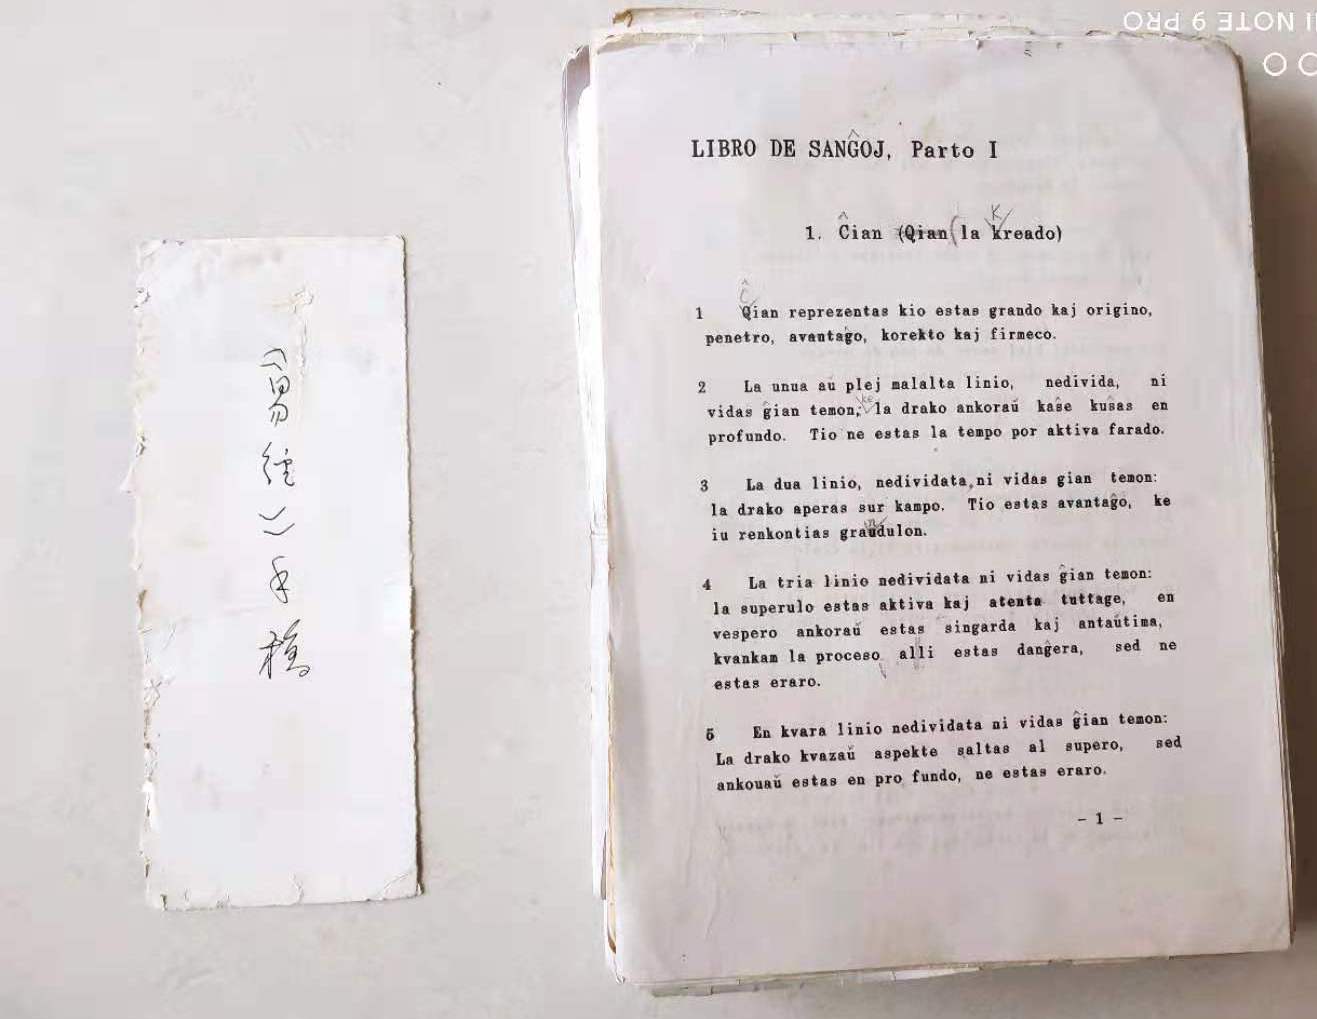 《易经》手稿
LIBRO DE SANĜOJ, Parto I
1. Ĉian (Qian (la kreado)
K
1 Qian reprezentas kio estas grando kaj origino,
penetro, avantaĝo, korekto kaj firmeco.
2 La unua aŭ plej malalta linio, nedivida, ni
vidas ĝian temon; ke la drako ankoraŭ kaŝe kuŝas en
profundo. Tio ne estas la tempo por aktiva farado.
3 La dua linio, nedividata, ni vidas gian temon:
la drako aperas sur kampo. Tio estas avantaĝo, ke
iu renkontias graudulon.
4 La tria linio nedividata ni vidas ĝian temon:
la superulo estas aktiva kaj atenta tuttage, en
vespero ankoraŭ estas singarda kaj antaŭtima,
kvankam la proceso alli estas danĝera, sed ne
estas eraro.
5 En kvara linio nedividata ni vidas ĝian temon:
La drako kvazaŭ aspekte saltas al supero, sed
ankouaŭ estas en pro fundo, ne estas eraro.
- 1 -
NOTE 9 PRO